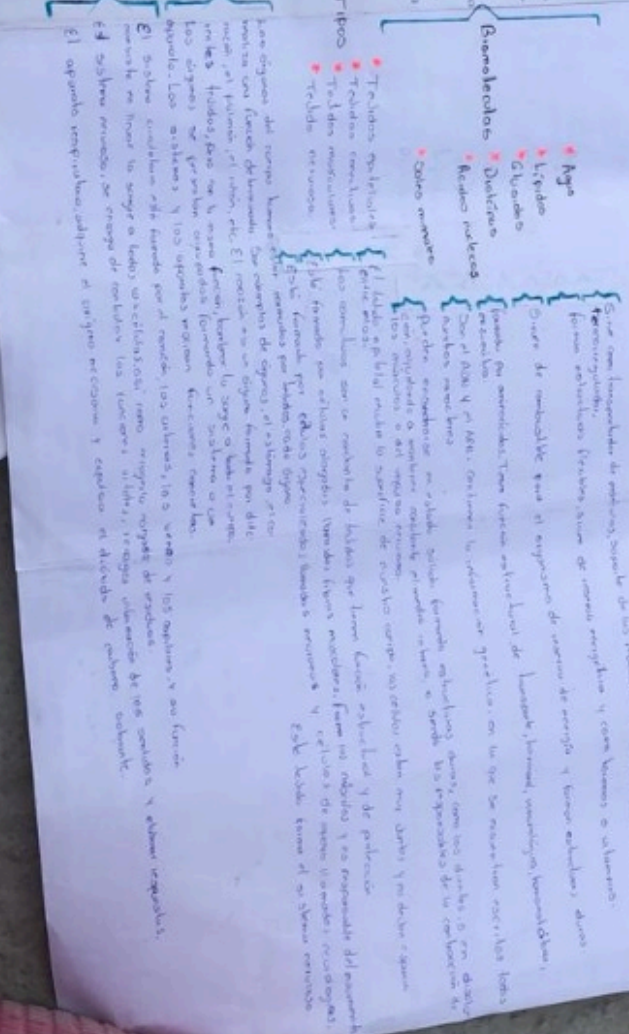 Biomoleculas
Agua
Sirve como transportador de sustancias, soporte de las
termorregulador,
Lipidos
forman estructuras flexibles, sirven de reserva energética y como hormonas o vitaminas.
Glucidos
Sirven de combustible para el organismo de reserva de energía y forman estructuras duras.
Proteinas
formadas por aminoácidos. Tienen función estructural de transporte, hormonal,
Acidos nucleicos
Son el ADN y el ARN. contienen la información genética, en la que se encuentran escritos todos
nuestros caracteres
Sales minerales
Pueden encontrarse en estado solido formando estructuras duras, como los dientes, o en
ayudando a mantener constante el medio interno o siendo las responsables de la contracción de
los músculos o del impulso nervioso.
TIPOS
Tejidos epiteliales
El tejido epitelial recubre la superficie de nuestro cuerpo, las células están muy juntas y no dejan espacio
entre ellas.
Tejidos conectivos
Los conectivos son un conjunto de tejidos que tienen función estructural y de protección
Tejidos musculares
Esta formado por células alargadas llamadas fibras musculares, forma los músculos y es responsable del movimiento
Tejido nervioso
Está formado por células especializadas llamadas neuronas y células de apoyo llamadas
Este tejido forma el sistema nervioso
Los órganos del cuerpo humano están formados por tejidos, cada órgano
realiza una función determinada. Son ejemplos de órganos, el estómago, el
el pulmón, el riñon, etc. El corazón es un órgano formado por
tejidos, pero con la misma función, bombear la sangre a todo el cuerpo.
Los órganos se presentan agrupados formando un sistema o un
aparato. Los sistemas y los aparatos realizan funciones concretas.
El sistema circulatorio esta formado por el corazón, las arterias, las venas y los capilares, y su función
consiste en llevar la sangre a todas las células, así como recogerla cargada de residuos.
El sistema nervioso, se encarga de controlar las funciones vitales, recoger información de los sentidos y elaborar respuestas.
El aparato respiratorio, adquiere el oxígeno necesario y expulsa el dióxido de carbono sobrante.